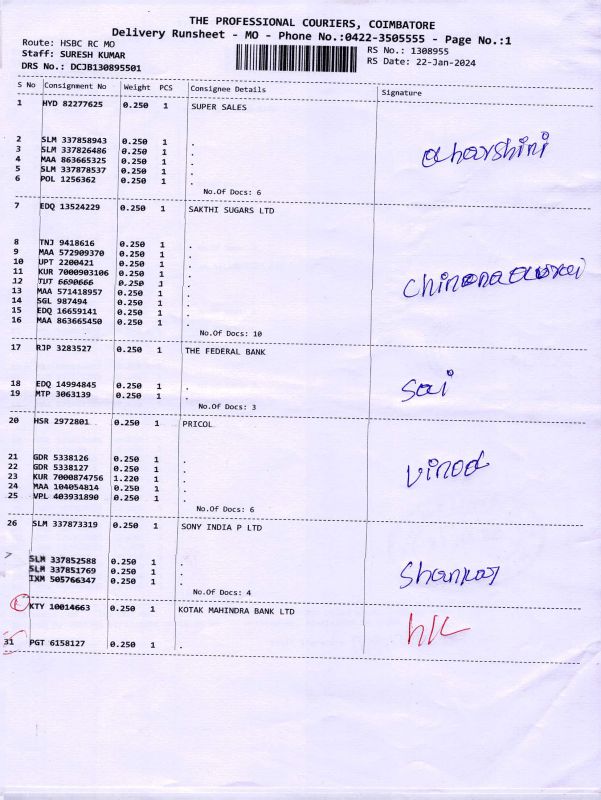 THE PROFESSIONAL COURIERS, COIMBATORE
Delivery Runsheet - MO - Phone No.:0422-3505555 - Page No.:1
Route: HSBC RC MO RS No.: 1308955
Staff: SURESH KUMAR RS Date: 22-Jan-2024
DRS No.: DCJB130895501
S No Consignment No Weight PCS Consignee Details Signature
1 HYD 82277625 0.250 1 SUPER SALES
2 SLM 337858943 0.250 1 .
3 SLM 337826486 0.250 1 .
4 MAA 863665325 0.250 1 .
5 SLM 337878537 0.250 1 .
6 POL 1256362 0.250 1 .
No.Of Docs: 6
7 EDQ 13524229 0.250 1 SAKTHI SUGARS LTD
8 TNJ 9418616 0.250 1 .
9 MAA 572909370 0.250 1 .
10 UPT 2200421 0.250 1 .
11 KUR 7000903106 0.250 1 .
12 TUT 6690666 0.250 1 .
13 MAA 571418957 0.250 1 .
14 SGL 987494 0.250 1 .
15 EDQ 16659141 0.250 1 .
16 MAA 863665450 0.250 1 .
No.Of Docs: 10
17 RJP 3283527 0.250 1 THE FEDERAL BANK
Sai
18 EDQ 14994845 0.250 1 .
19 MTP 3063139 0.250 1 .
No.Of Docs: 3
20 HSR 2972801 0.250 1 PRICOL
Vinod
21 GDR 5338126 0.250 1 .
22 GDR 5338127 0.250 1 .
23 KUR 7000874756 1.220 1 .
24 MAA 104054814 0.250 1 .
25 VPL 403931890 0.250 1 .
No.Of Docs: 6
26 SLM 337873319 0.250 1 SONY INDIA P LTD
SLM 337852588 0.250 1 .
SLM 337851769 0.250 1 .
IXM 505766347 0.250 1 .
Shankar
No.Of Docs: 4
KTY 10014663 0.250 1 KOTAK MAHINDRA BANK LTD
31 PGT 6158127 0.250 1 .